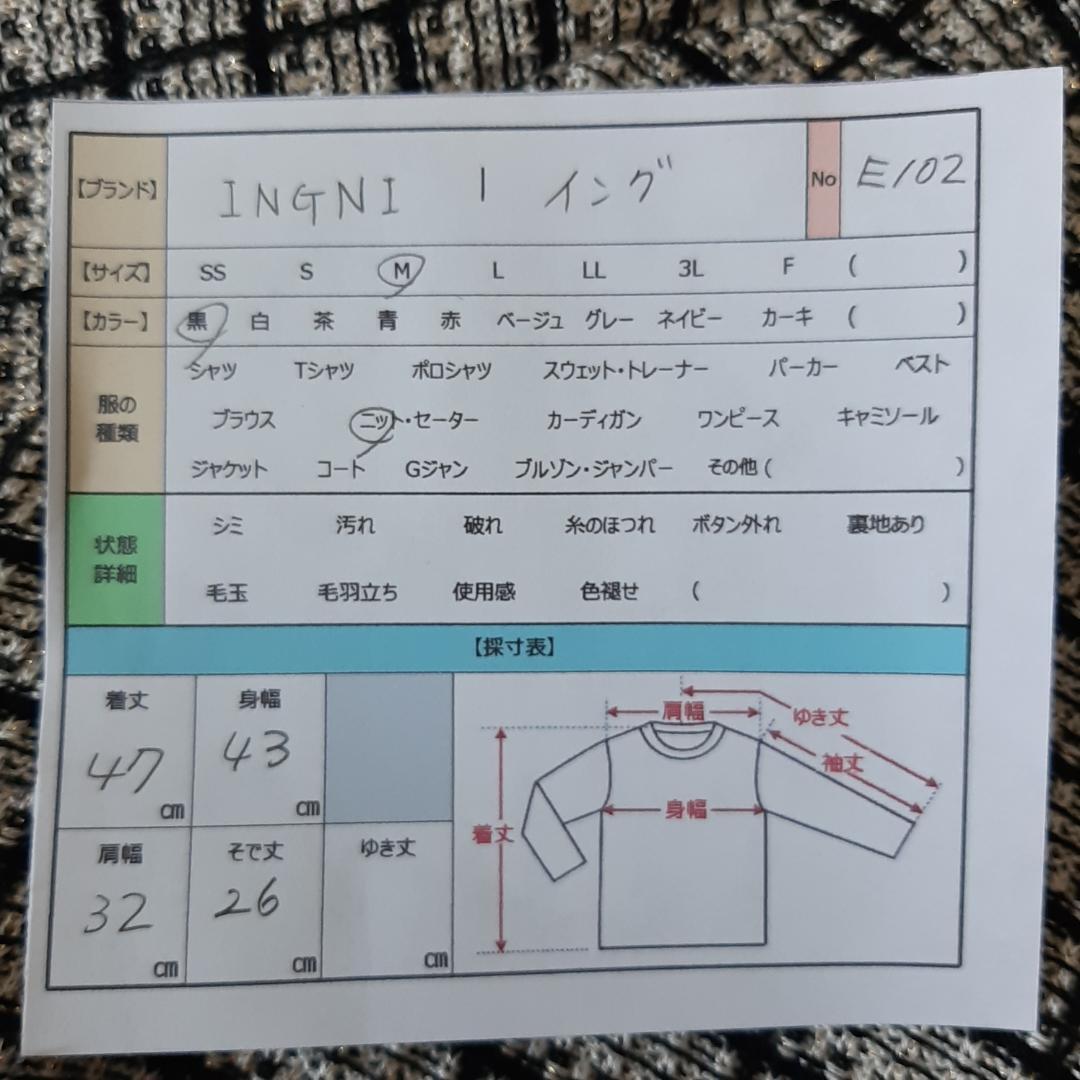 【ブランド】 INGNI | イング No E102
【サイズ】 SS S M L LL 3L F ( )
【カラー】 黒 白 茶 青 赤 ベージュ グレー ネイビー カーキ ( )
服の
種類
シャツ Tシャツ ポロシャツ スウェット・トレーナー パーカー ベスト
ブラウス ニット・セーター カーディガン ワンピース キャミソール
ジャケット コート Gジャン ブルゾン・ジャンパー その他 ( )
状態
詳細
シミ 汚れ 破れ 糸のほつれ ボタン外れ 裏地あり
毛玉 毛羽立ち 使用感 色褪せ ( )
【採寸表】
着丈 身幅
47 cm 43 cm
肩幅 そで丈 ゆき丈
32 cm 26 cm cm
肩幅 ゆき丈
袖丈
着丈 身幅